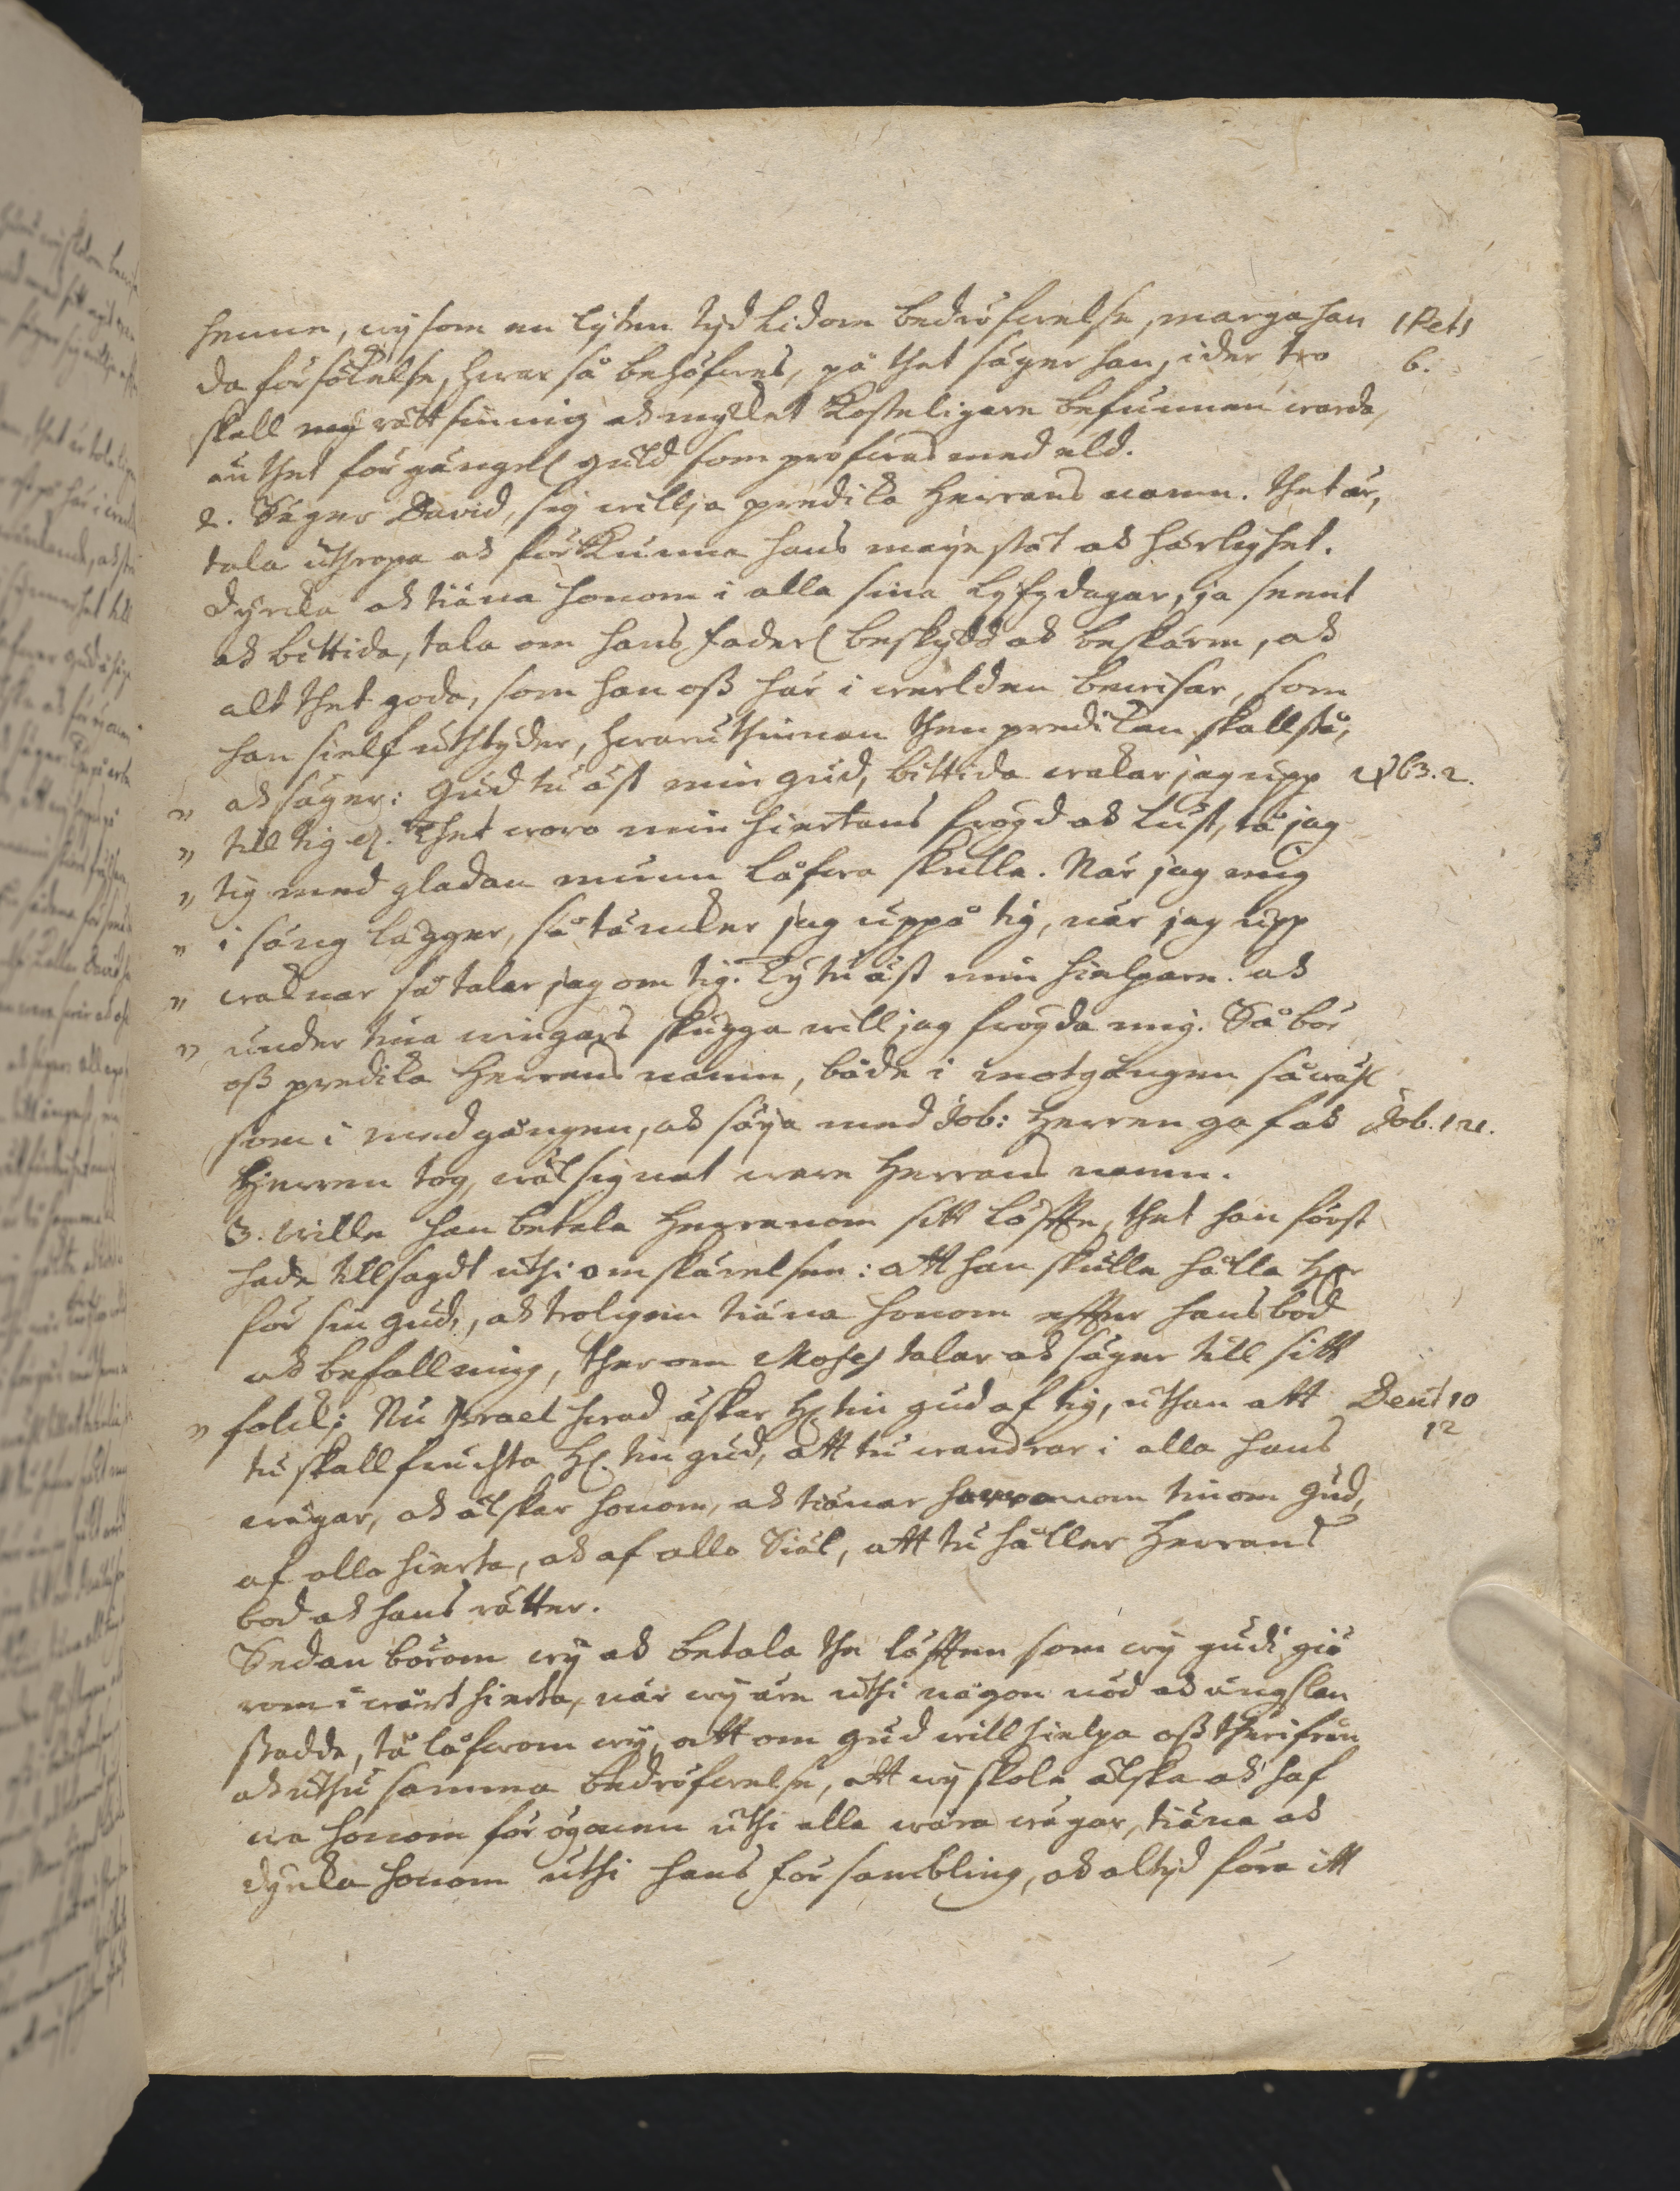 henne, wij som en lijten tijd lidom bedröfwelse, margahan 1 Pet 1
da försökelse, hwar så behöfwes, på thet säger han, ider tro 6.
skall rättsinnig ock mycket kosteligare befunnen warda,
än thet förgängel guld som profwas med eld.
2. Säger David, sig willja predika Herrans namn. Thet är,
tala uthropa ock förkunna hans mayestät ock härlighet.
dyrcka ock tiäna honom i alla sina lyfzdagar, ja seent
ock bittida, tala om hans faderl beskydd ock beskärm, ock
alt thet goda, som han oss här i werlden bewisar, som
han sielf uthtyder, hwaruthinnan then predikan skall stå,
" ock säger: Gud tu äst min gud, bittida wakar jag upp Ψ 63. 2.
" till tig etc. Thet woro min hiertans frögd ock lust, tå jag
" tig med gladan munn låfwa skulle. När jag mig
" i säng lägger, så täncker jag uppå tig, när jag upp
" waknar så talar jag om tig. Ty tu äst min hielpare. ock
" under tina wingars skugga will jag frögda mig. Så bör
oss predika Herrans namn, både i motgången såwäl
som i medgången, ock säya med Job: Herren gaf ock Job. 1 21.
Herren tog, wälsignat ware Herrans namn.
3. wille han betala Herranom sitt löffte, thet han först
hade tillsagdt uthi omskärelsen: att han skulle hålla Her
för sin gud, ock troligen tiäna honom effter hans bod
ock befallning, therom Moses talar ock säger till sitt
" folck; Nu Israel hwad äskar H. tin gud af tig, uthan att Deut 10
tu skall fruchta H. tin gud, att tu wandrar i alla hans 12
wägar, ock älskar honom, ock tiänar herranom tinom gud,
af allo hierta, ock af allo Siäl, att tu håller Herrans
bod ock hans rätter.
Sedan börom wij ock betala the löfften som wij gudi giö
rom i wårt hierta, när wij äre uthi någon nöd ock ängslan
stadde, tå låfwom wij, att om gud will hielpa oss therifrån
ock uthu samma bedröfwelse, att wij skole älska ock haf
wa honom för ögonen uthi alla wåra wägar, tiäna ock
dyrcka honom uthi hans försambling, ock altijd föra itt